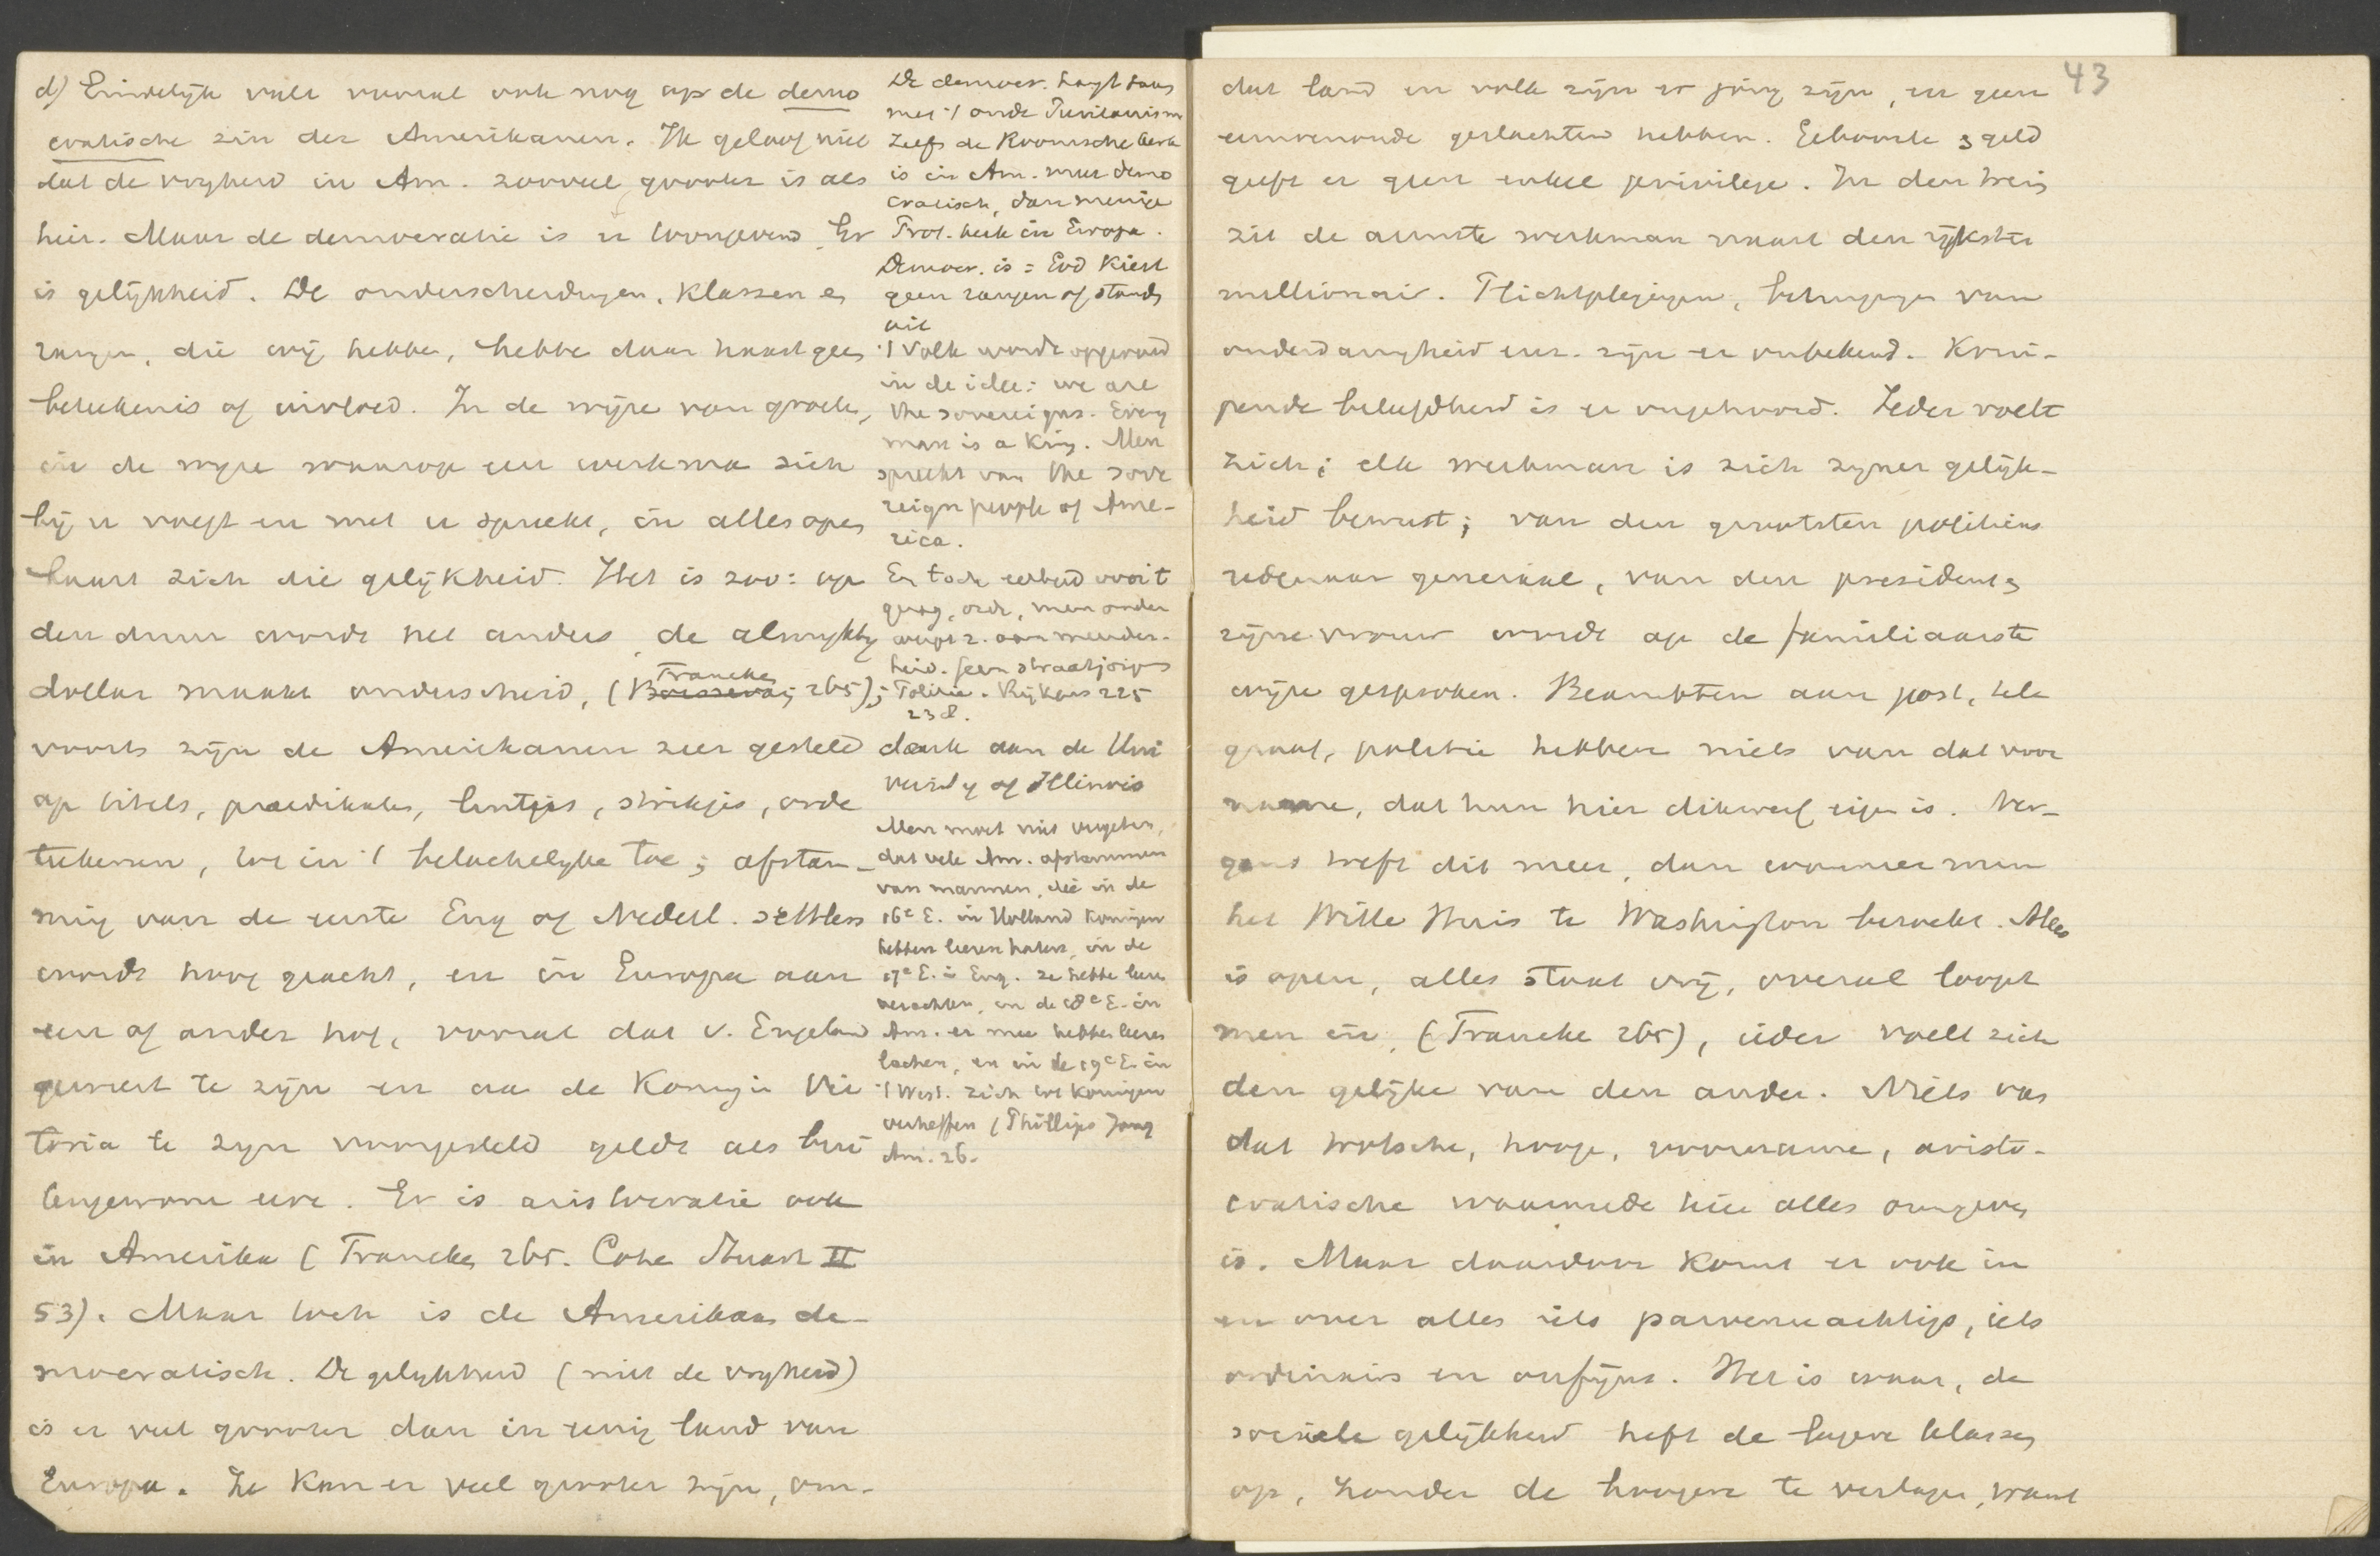 d) Eindelijk valt vooral ook nog op de demo
cratische zin der Amerikanen. Ik geloof niet
dat de vrijheid in Am. zooveel grooter is als
hier. Maar de democratie is er toongevend. Er
is gelijkheid. De onderscheidingen, klassen en
rangen, die wij hebben, hebben daar haast geen
beteekenis of invloed. In de wijze van groeten,
in de wijze waarop een werkman zich
bij u voegt en met u spreekt, in alles open
baart zich die gelijkheid. Het is zoo: op
den duur wordt het anders, de almachtige
dollar maakt onderscheid, (Francke 265);
voorts zijn de Amerikanen zeer gesteld
op titels, praedikaten, lintjes, strikjes, orde
teekenen, tot in 't belachelijke toe; afstam-
ming van de eerste Eng of Nederl. settlers
wordt hoog geacht, en in Europa aan
een of ander hof, vooral dat v. Engeland
geweest te zijn en aan de Koningin Vic
toria te zijn voorgesteld geldt als bui
tengewone eere. Er is aristocratie ook
in Amerika (Francke 265. Cohen Stuart II
53). Maar toch is de Amerikaan de-
mocratisch. De gelijkheid (niet de vrijheid)
is er veel grooter dan in eenig land van
Europa. Ze kan er veel grooter zijn, om-
De democr. hangt saam
met 't oude Puritanism
Zelfs de Roomsche kerk
is in Am. meer demo
cratisch, dan menige
Prot. kerk in Europa.
Democr. is = God kiest
geen rangen of stands
uit
't Volk wordt opgevoed
in de idee: we are
the sovereigns. Every
man is a King. Men
spreekt van the sove
reign people of Ame-
rica.
En toch eerbied voor 't
gezag, orde, men onder
werpt z. aan meerder-
heid. Geen straatjongens
Politie. Rijkens 225
238.
dank aan de Uni
versity of Illinois
Men moet niet vergeten,
dat vele Am. afstammen
van mannen, die in de
16e E. in Holland Koningen
hebben leeren haten, in de
17e E. in Eng. ze hebben leeren
verachten, in de 18e E. in
Am. er mee hebben leeren
lachen, en in de 19e E. in
't West. zich tot Koningen
verheffen (Phillips Jong
Am. 26.
43
dat land en volk zijn er jong zijn, en geen
eeuwenoude geslachten hebben. Geboorte en geld
geeft er geen enkel privilege. In den trein
zit de armste werkman naast den rijksten
millionair. Plichtplegingen, betuigingen van
onderdanigheid enz. zijn er onbekend. Krui-
pende beleefdheid is er ongehoord. Ieder voelt
zich; elk werkman is zich zijner gelijk-
heid bewust; van den grootsten politicus
redenaar generaal, van den president en
zijne vrouw wordt op de familiaarste
wijze gesproken. Beambten aan post, tele
graaf, politie hebben niets van dat voor
name, dat hun hier dikwerf eigen is. Ner-
gens treft dit meer, dan wanneer men
het Witte Huis te Washington bezoekt. Alles
is open, alles staat vrij, overal loopt
men in, (Francke 265), ieder voelt zich
den gelijke van den ander. Niets van
dat trotsche, hooge, voorname, aristo-
cratische waarmede hier alles omgeven
is. Maar daardoor komt er ook in
en over alles iets parvenuachtigs, iets
ordinairs en onfijns. Het is waar, de
sociale gelijkheid heft de lagere klassen
op, zonder de hoogere te verlagen, want